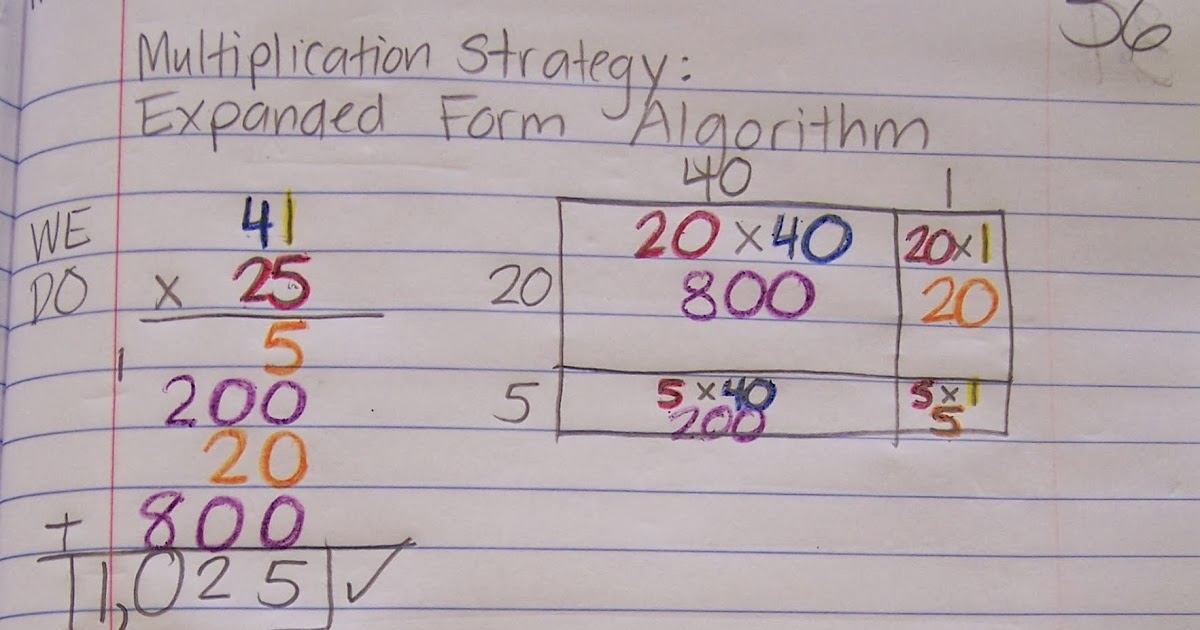 56
Multiplication Strategy:
Expanded Form Algorithm
WE
DO
41
x 25
5
1
200
20
+ 800
1,025 ✓
40 1
20
20 x 40
800
20x1
20
5
5 x 40
200
5x1
5